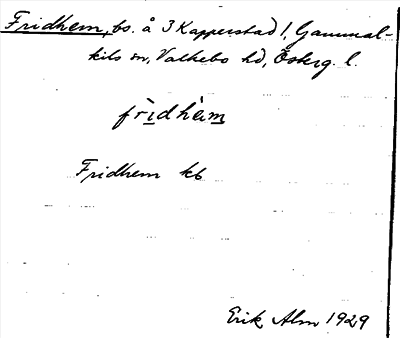 Fridhem, bs. å 3 Kapperstad 1, Gammal-
kils sn, Valkebo hd, Österg. l.
fri̱dhem̱
Fridhem kb
Erik Alm 1929